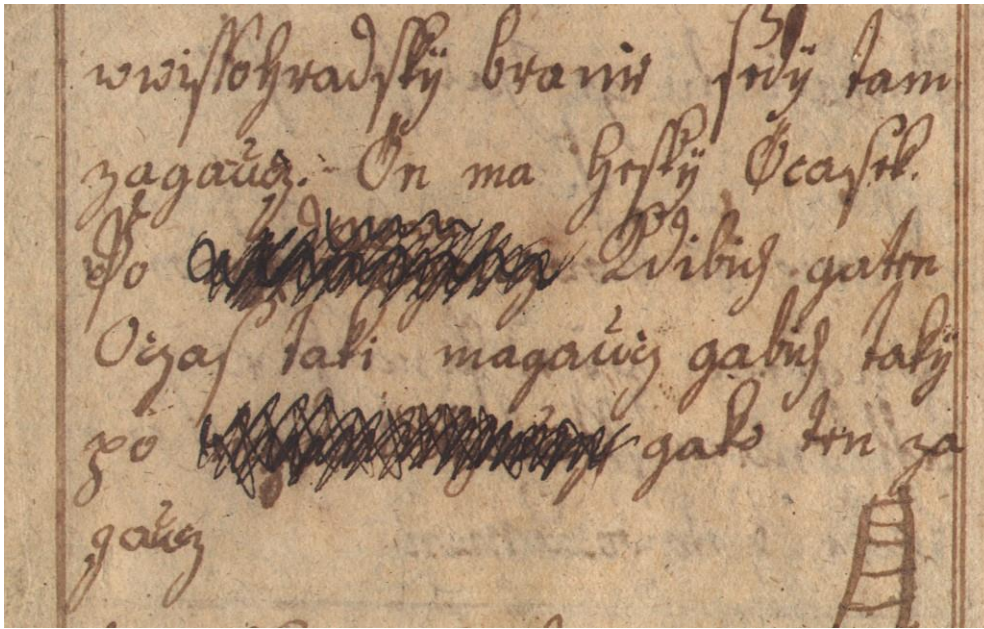 wwissohradský branie sedy tam
zagaücz. On ma hesky Ocasek.
Po Kdibich gaten
Oczas taki magaücz gabich taky
po gako ten za
gaücz